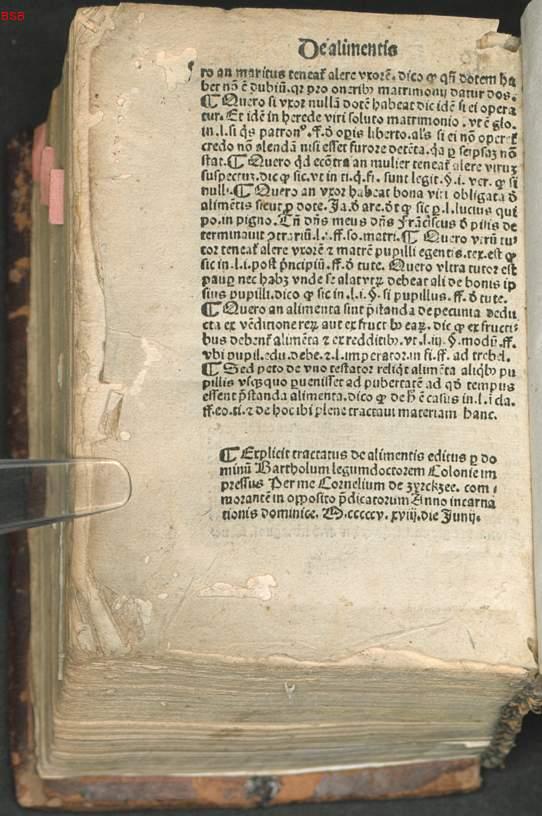 BSB
De alimentis
ro an maritus teneat̃ alere vxorẽ. dico ꝙ qñ dotem ha
ber nõ ẽ dubiũ. qꝛ pro oneribꝰ matrimonij datur dos.
¶ Quero si vxor nullã dotẽ habeat dic idẽ si ei opera
tur. Et idẽ in herede viri soluto matrimonio
in.l.si q̃s patronꝰ.ff.d̃ opis liberto. als̃ si ei nõ
credo nõ alendã nisi esset furore detẽta. seipsaz nõ
stat. ¶ Quero qd ecõtra an mulier teneat̃ alere viruꝫ
suspectus. dic ꝙ sic. vt in ti.q.fi. sunt legit.§.i. ver. ꝙ si
nulli. ¶ Quero an vxor habeat bona viri obligata ꝓ
alimẽtis sicut ꝓ dote. Ja. d̃ are. dt̃ ꝙ sic ꝑ.l.lucius qui
po.in pigno. Tñ dñs meus dñs Frãciscus d̃ pisis de
terminauit ɔtrariũ.l.i.ff.so.matri. ¶ Quero vtrũ tu
tor teneat̃ alere vxorẽ ⁊ matrẽ pupilli egentis. tex. est ꝙ
sic in.l.i.post p̃ncipiũ.ff.d̃ tute. Quero vltra tutor est
paup̲ nec habꝫ vnde se alat vtꝝ debeat ali de bonis ip
sius pupilli. dico ꝙ sic in.l.i.§.si pupillus.ff.d̃ tute.
¶ Quero an alimenta sint p̃standa de pecunia dedu
cta ex vẽditione reꝝ aut ex fructibꝰ eaꝝ. dic ꝙ ex fructi
bus debent̃ alimẽta ⁊ ex redditibꝰ. vt.l.iij.§.modũ.ff.
vbi pupil.edu.debe.⁊.l.imperator.in fi.ff. ad trebel.
¶ Sed peto de vno testator reliq̃t alimẽta aliqbꝰ pu
pillis vsqꝫquo ꝑuenissẽt ad pubertatẽ ad qd̃ tempus
essent p̃standa alimenta. dico ꝙ de h̃ ẽ casus in.l.
ff.eo.ti.⁊ de hoc ibi plene tractaui materiam hanc.
¶ Explicit tractatus de alimentis editus ꝑ do
minũ Bartholum legumdoctorem Colonie im
pressus Per me Cornelium de zyrckzee. com
morantẽ in opposito p̃dicatorum Anno incarna
tionis dominice. M.ccccc v. xviij. die Junij.